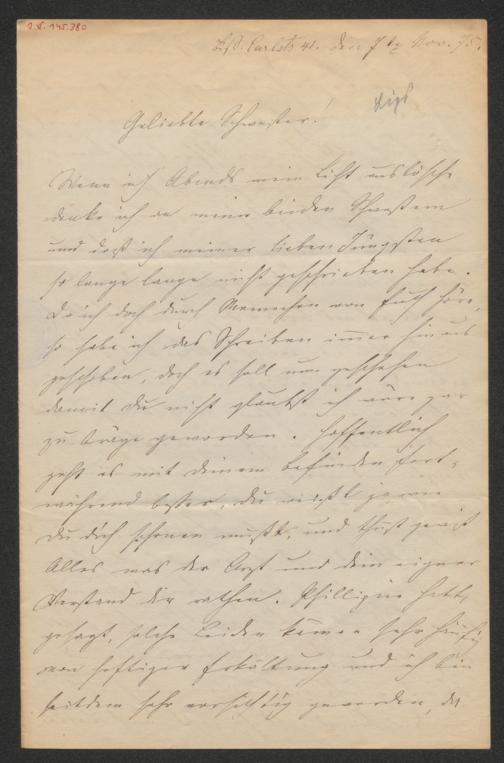 I.N. 145.380
den 7ten Nov. 75.
Geliebte Schwester!
Wenn ich Abends mein Licht auslösche
denke ich an meine beiden Schwestern
und daß ich meiner lieben Jüngsten
so lange lange nicht geschrieben habe.
Da ich doch durch von Euch höre,
so habe ich das Schreiben immer hinaus
geschoben, doch es soll nun geschehen
damit du nicht glaubst ich wäre gar
zu träge geworden. Hoffentlich
geht es mit deinem Befinden fort,
während besser, du weißt ja wie
du dich schonen mußt, und thust gewiß
Alles was der Arzt und dein eigner
Verstand dir rathen. Philippine hatte
gesagt, solche Leiden kämen sehr häufig
von heftiger Erkältung und ich bin
seitdem sehr vorsichtig geworden, da